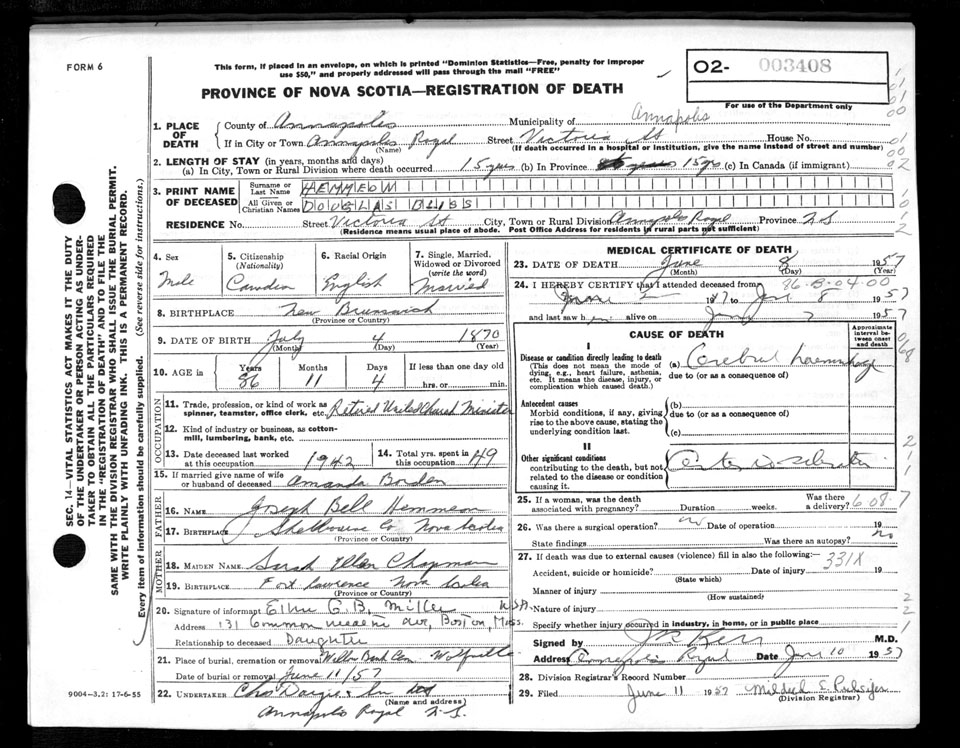 FORM 6
This form, if placed in an envelope, on which is printed "Dominion Statistics—Free, penalty for improper
use $50," and properly addressed will pass through the mail "FREE"
O2- 003408
For use of the Department only
PROVINCE OF NOVA SCOTIA—REGISTRATION OF DEATH
1. PLACE OF DEATH
County of Annapolis Municipality of Annapolis
If in City or Town Annapolis Royal Street Victoria St House No.
(Name) (If death occurred in a hospital or institution, give the name instead of street and number)
2. LENGTH OF STAY (in years, months and days)
(a) In City, Town or Rural Division where death occurred 15 yrs (b) In Province 15 yrs (c) In Canada (if immigrant)
3. PRINT NAME OF DECEASED
Surname or Last Name HEMMEON
All Given or Christian Names DOUGLAS BLISS
RESIDENCE No. Street Victoria St City, Town or Rural Division Annapolis Royal Province N.S
(Residence means usual place of abode. Post Office Address for residents in rural parts not sufficient)
4. Sex
Male
5. Citizenship
(Nationality)
Canadian
6. Racial Origin
English
7. Single, Married, Widowed or Divorced
(write the word)
Married
8. BIRTHPLACE New Brunswick
(Province or Country)
9. DATE OF BIRTH July 4 1870
(Month) (Day) (Year)
10. AGE in Years Months Days If less than one day old
86 11 4 hrs. or min.
OCCUPATION
11. Trade, profession, or kind of work as
spinner, teamster, office clerk, etc. Retired United Church Minister
12. Kind of industry or business, as cotton-
mill, lumbering, bank, etc.
13. Date deceased last worked
at this occupation 1942
14. Total yrs. spent in
this occupation 49
15. If married give name of wife
or husband of deceased Amanda Borden
FATHER
16. NAME Joseph Bell Hemmeon
17. BIRTHPLACE Shelburne Co Nova Scotia
(Province or Country)
MOTHER
18. MAIDEN NAME Sarah Ellen Chapman
19. BIRTHPLACE Fort Lawrence Nova Scotia
(Province or Country)
20. Signature of informant G.B. Miller
Address 131 Ave, Boston, Mass. USA
Relationship to deceased Daughter
21. Place of burial, cremation or removal Cem Wolfville
Date of burial or removal June 11/57
22. UNDERTAKER Chas Dargie & Son Ltd
(Name and address)
Annapolis Royal N.S.
9004-3.2: 17-6-55
MEDICAL CERTIFICATE OF DEATH
23. DATE OF DEATH June 8 1957
(Month) (Day) (Year)
86-B-04-00
24. I HEREBY CERTIFY that I attended deceased from
1947 to Jun 8 1957
and last saw h alive on June 7 1957
CAUSE OF DEATH
Approximate interval between onset and death
I
Disease or condition directly leading to death
(This does not mean the mode of dying, e.g., heart failure, asthenia, etc. It means the disease, injury, or complication which caused death.)
(a) Cerebral haemorrhage
due to (or as a consequence of)
Antecedent causes
Morbid conditions, if any, giving rise to the above cause, stating the underlying condition last.
(b)
due to (or as a consequence of)
(c)
II
Other significant conditions
contributing to the death, but not related to the disease or condition causing it.
25. If a woman, was the death
associated with pregnancy? Duration weeks. Was there a delivery?
26. Was there a surgical operation? no Date of operation 19
State findings Was there an autopsy? no
27. If death was due to external causes (violence) fill in also the following:—
331X
Accident, suicide or homicide? Date of injury 19
(State which)
Manner of injury
(How sustained)
Nature of injury
Specify whether injury occurred in industry, in home, or in public place
Signed by J R Kerr M.D.
Address Annapolis Royal Date Jun 10 1957
28. Division Registrar's Record Number
29. Filed June 11 1957 Mildred E.
(Division Registrar)
SEC. 14—VITAL STATISTICS ACT MAKES IT THE DUTY
OF THE UNDERTAKER OR PERSON ACTING AS UNDER-
TAKER TO OBTAIN ALL THE PARTICULARS REQUIRED
IN THE "REGISTRATION OF DEATH" AND TO FILE THE
SAME WITH THE DIVISION REGISTRAR WHO SHALL ISSUE THE BURIAL PERMIT.
WRITE PLAINLY WITH UNFADING INK. THIS IS A PERMANENT RECORD.
Every item of information should be carefully supplied. (See reverse side for instructions.)